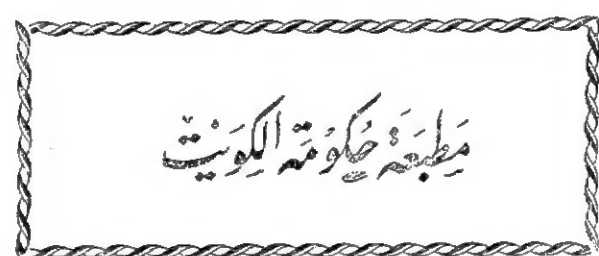 مَطبَعَة حُكومَة الكِوَيْت